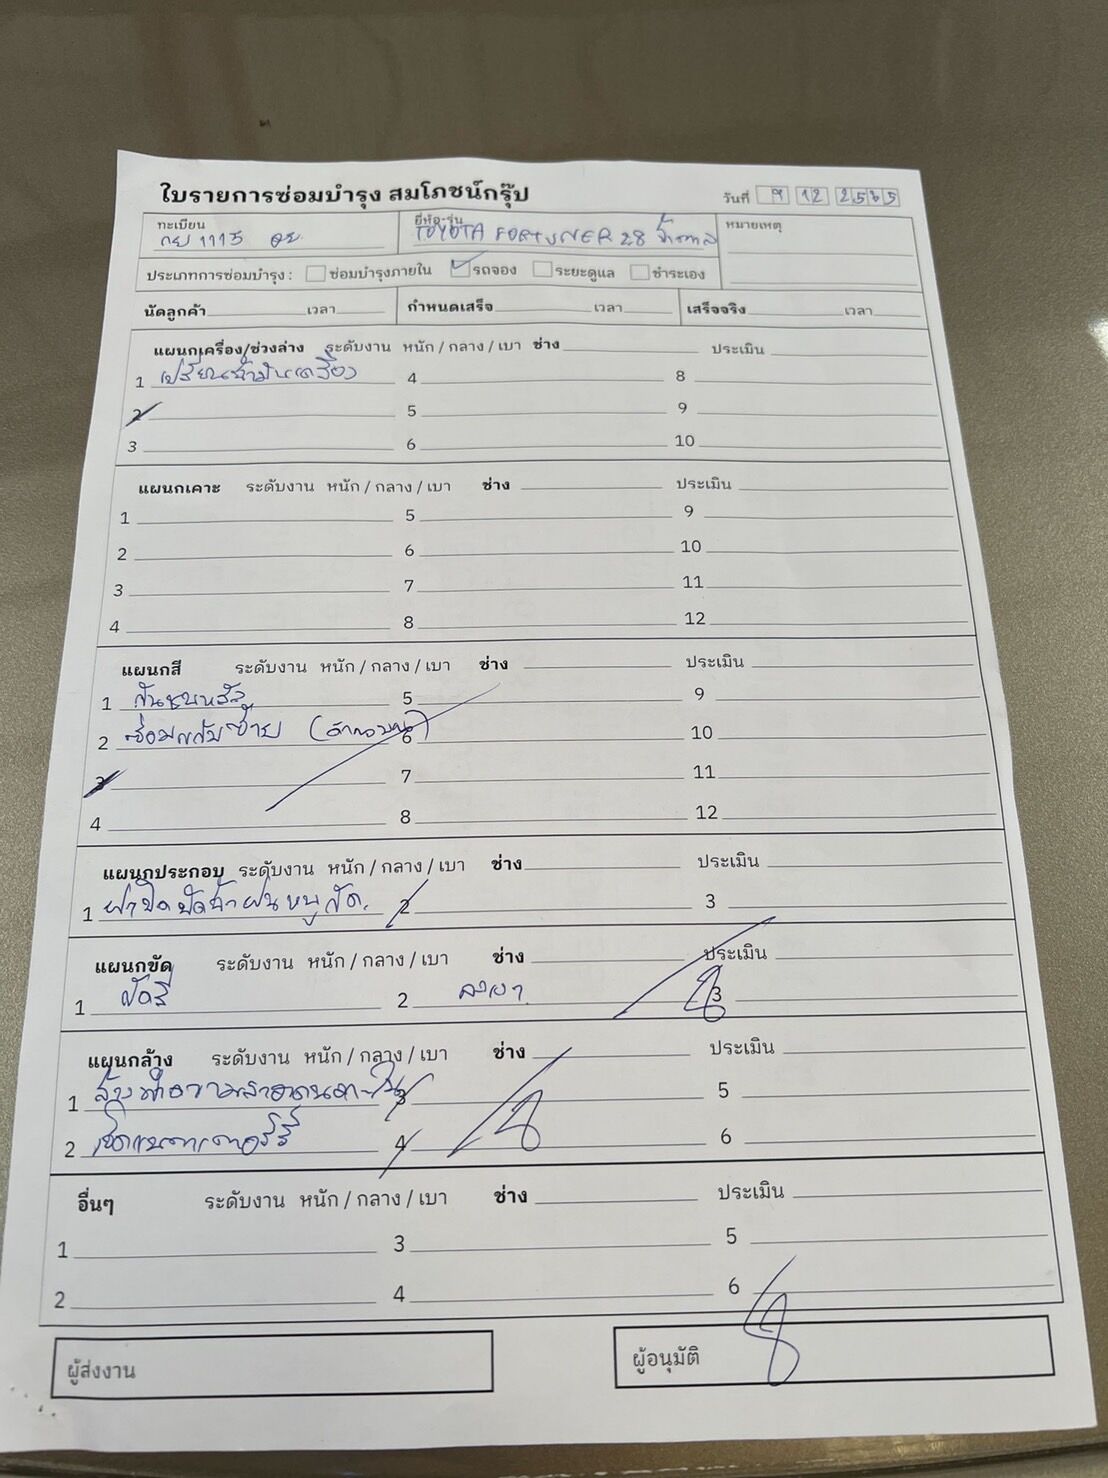 ใบรายการซ่อมบำรุง สมโภชน์กรุ๊ป
วันที่ 9 12 2565
ทะเบียน ยี่ห้อ-รุ่น หมายเหตุ
กย 1113 อย. TOYOTA FORTUNER 28 น้ำตาล
ประเภทการซ่อมบำรุง : ซ่อมบำรุงภายใน รถจอง ระยะดูแล ชำระเอง
นัดลูกค้า เวลา กำหนดเสร็จ เวลา เสร็จจริง เวลา
แผนกเครื่อง/ช่วงล่าง ระดับงาน หนัก / กลาง / เบา ช่าง ประเมิน
1 เปลี่ยนน้ำมันเครื่อง 4 8
2 5 9
3 6 10
แผนกเคาะ ระดับงาน หนัก / กลาง / เบา ช่าง ประเมิน
1 5 9
2 6 10
3 7 11
4 8 12
แผนกสี ระดับงาน หนัก / กลาง / เบา ช่าง ประเมิน
1 กันชนหลัง 5 9
2 ซ่อมแก้มซ้าย 6 10
3 7 11
4 8 12
แผนกประกอบ ระดับงาน หนัก / กลาง / เบา ช่าง ประเมิน
1 ฝาปิดปัดน้ำฝนหนูกัด. 2 3
แผนกขัด ระดับงาน หนัก / กลาง / เบา ช่าง ประเมิน
1 ขัดสี 2 ลงเงา. 3
แผนกล้าง ระดับงาน หนัก / กลาง / เบา ช่าง ประเมิน
1 3 5
2 เช็คแบตเตอร์รี่ 4 6
อื่นๆ ระดับงาน หนัก / กลาง / เบา ช่าง ประเมิน
1 3 5
2 4 6
ผู้ส่งงาน ผู้อนุมัติ